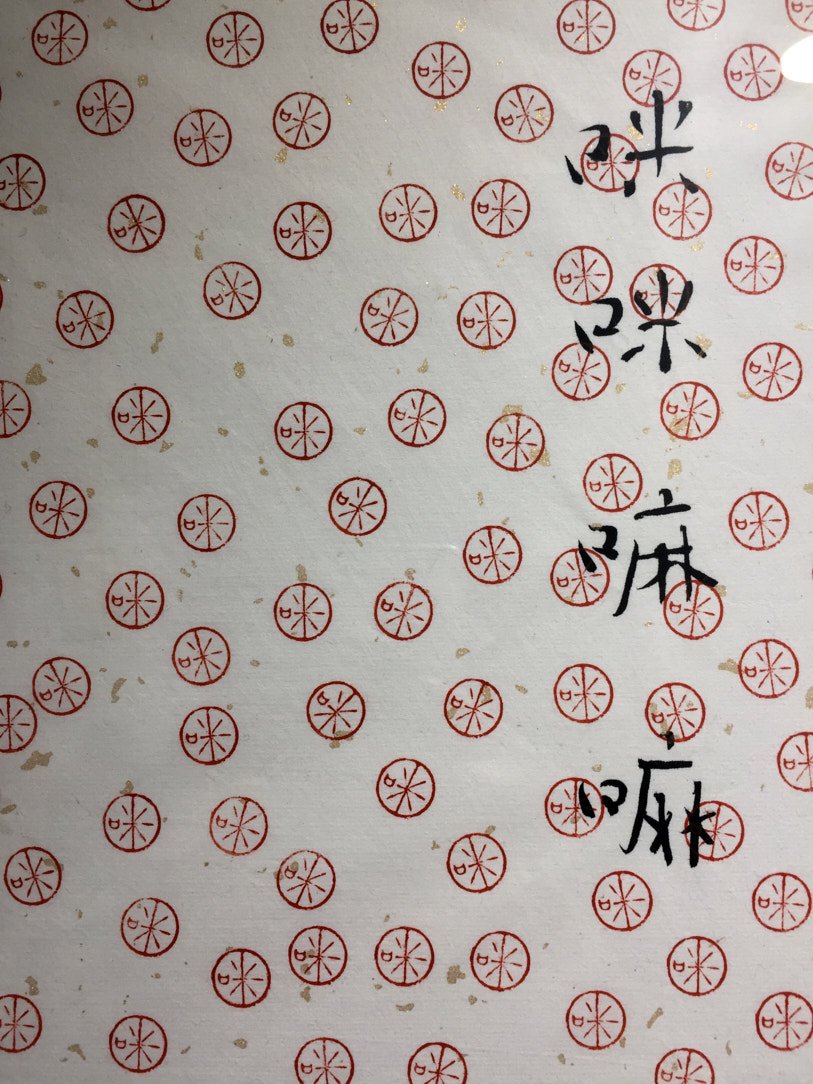 咪咪嘛嘛